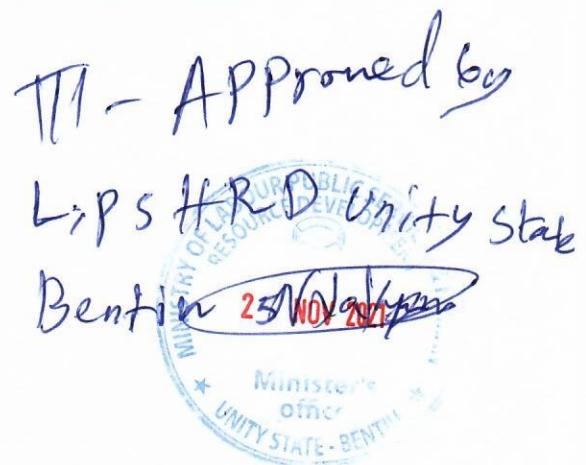 III - Approved by
L, PS HRD Unity State
Bentiu
25 NOV 2021
MINISTRY OF LABOUR PUBLIC
RESOURCE DEVELOP
Minister's
office
UNITY STATE - BENTIU